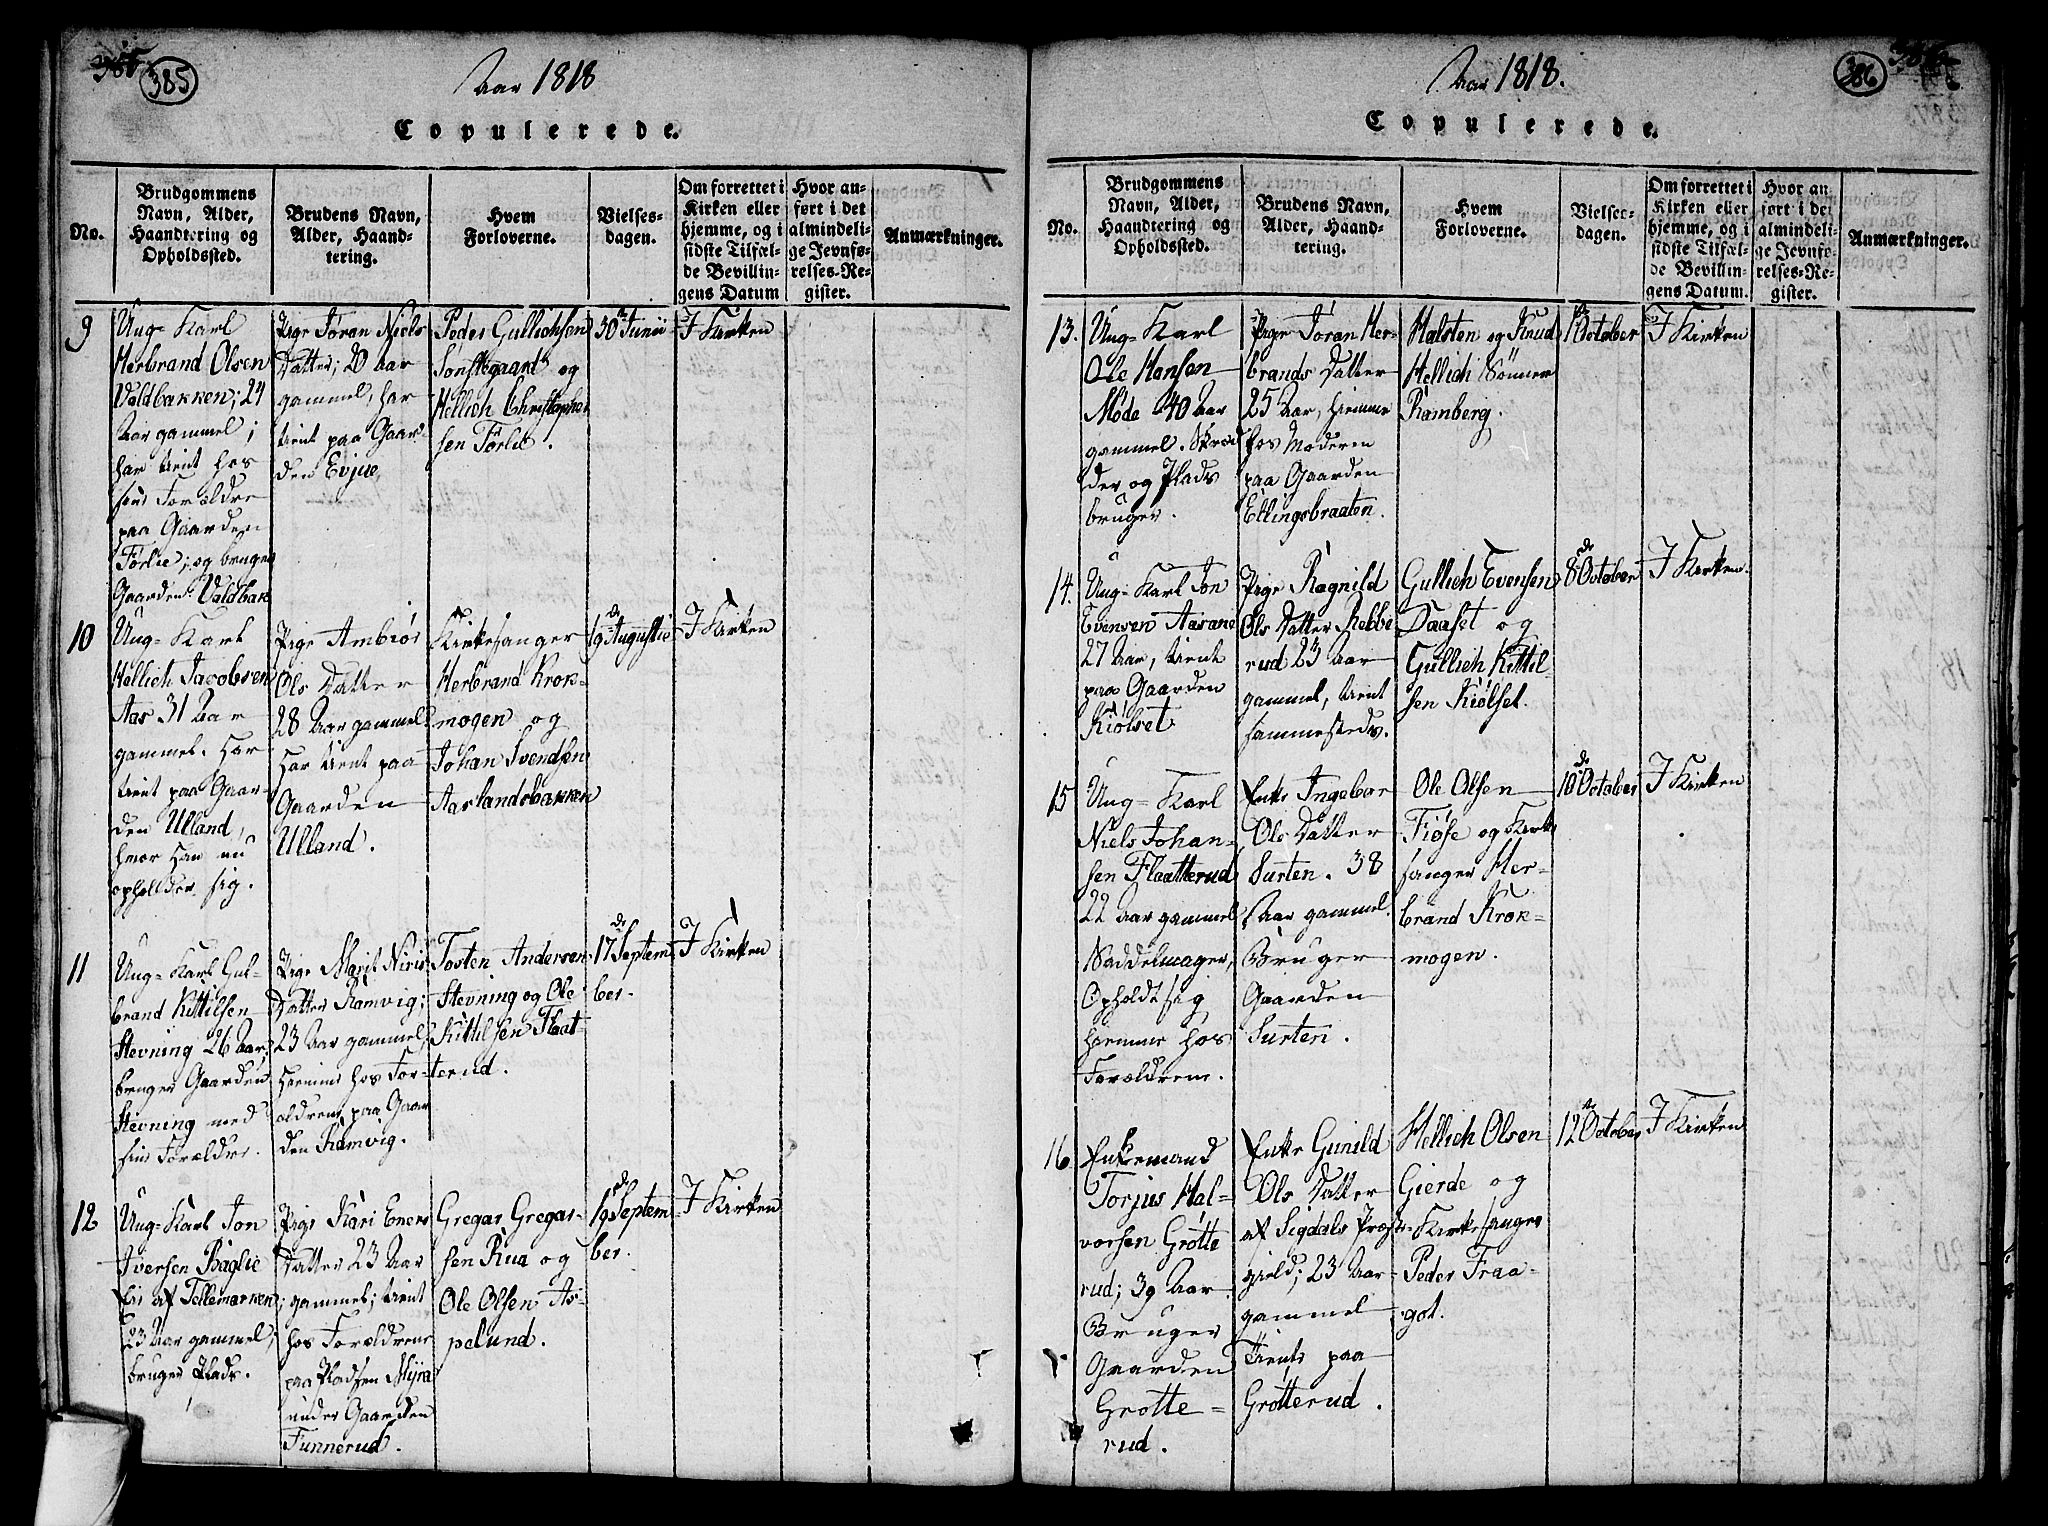 385
Aar 1818
Copulerede.
No.
Brudgommens
Navn, Alder,
Haandtering og
Opholdssted.
Brudens Navn,
Alder, Haand-
tering.
Hvem
Forloverne.
Vielses-
dagen.
Om forrettet i
Kirken eller
hjemme, og i
sidste Tilfæl-
de Bevillin-
gens Datum
Hvor an-
ført i det
almindeli-
ge Jevnfø-
relses-Re-
gister.
Anmærkninger.
9
Ung- Karl
Herbrand Olsen
Valdbakken; 24
Aar gammel;
har tient hos
sine Forældre
paa Gaarden
Førlie; og bruger
Gaarden Valdbak
Pige Jøran Niels
Datter; 20 Aar
gammel, har
tient paa Gaar-
den Evjue,
Peder Gullichsen
Sønstegaard og
Hellich Christophe
sen Førlie.
30te Junii
I Kirken
10
Ung- Karl
Hellich Jacobsen
Aas 31 Aar
gammel. har
tient paa Gaar-
den Ulland,
hvor han nu
opholder sig.
Pige Ambiør
Ols Datter
28 Aar gammel.
har tient paa
Gaarden
Ulland.
Kirkesanger
Herbrand Krok-
mogen og
Johan Svendsen
Aaslandsbakken
19de Augustii
I Kirken
11
Ung- Karl Gul-
brand Kittilsen
Stevning 26 Aar,
bruger Gaarden
Stevning med
sine Forældre.
Pige Marit Niris
Datter Ramvig;
23 Aar gammel,
hiemme hos For-
ældrene paa Gaar
den Ramvig.
Tosten Andersen
Stevning og Ole
Kittilsen Flaat-
terud.
17de Septem
ber.
I Kirken
12
Ung- Karl Jon
Iversen Baglie
en af Tellemarken
23 Aar gammel;
bruger Plads.
Pige Kari Eners
Datter 23 Aar
gammel; tient
hos Forældrene
paa Pladsen Myra
under Gaarden
Funnerud.
Gregar Gregar-
sen Rua og
Ole Olsen As-
pelund.
19de Septem
ber.
I Kirken
386
Aar 1818.
Copulerede.
No.
Brudgommens
Navn, Alder,
Haandtering og
Opholdssted.
Brudens Navn,
Alder, Haand-
tering.
Hvem
Forloverne.
Vielses-
dagen.
Om forrettet i
Kirken eller
hjemme, og i
sidste Tilfæl-
de Bevillin-
gens Datum.
Hvor an
ført i det
almindeli-
ge Jevnfø-
relses-Re-
gister.
Anmærkninger.
13.
Ung- Karl
Ole Hansen
Møde 40 Aar
gammel. Skræd
der og Plads
bruger.
Pige Jøran Her-
brands Datter
25 Aar, hiemme
hos Moderen
paa Gaarden
Ellingsbraaten.
Halsten og Knud
Hellich Sønner
Ramberg.
1te October
I Kirken
14.
Ung- Karl Jon
Evensen Aasane
27 Aar, tient
paa Gaarden
Kiølset
Pige Ragnild
Ols Datter Rebbe
rud 23 Aar
gammel, tient
sammesteds.
Gullich Evensen
Daaset og
Gullich Kittil
sen Kiølset.
8de October
I Kirken.
15
Ung- Karl
Niels Johan-
sen Flaatterud
22 Aar gammel
Saddelmager,
Opholdt sig
hiemme hos
Forældrene.
Enke Ingebor
Ols Datter
Surten. 38
Aar gammel.
Bruger
Gaarden
Surten.
Ole Olsen
Fiøse og Kirk
sanger Her-
brand Krok-
mogen.
10de October
I Kirken
16
Enkemand
Torjus Hal-
vorsen Grøtte
rud; 39 Aar
Bruger
Gaarden
Grøtte-
rud.
Enke Gunild
Ols Datter
af Sigdals Præste-
gield; 23 Aar
gammel
Tient paa
Grøtterud.
Hellich Olsen
Gierde og
Kirkesanger
Peder Fraa-
got.
12te October
I Kirken